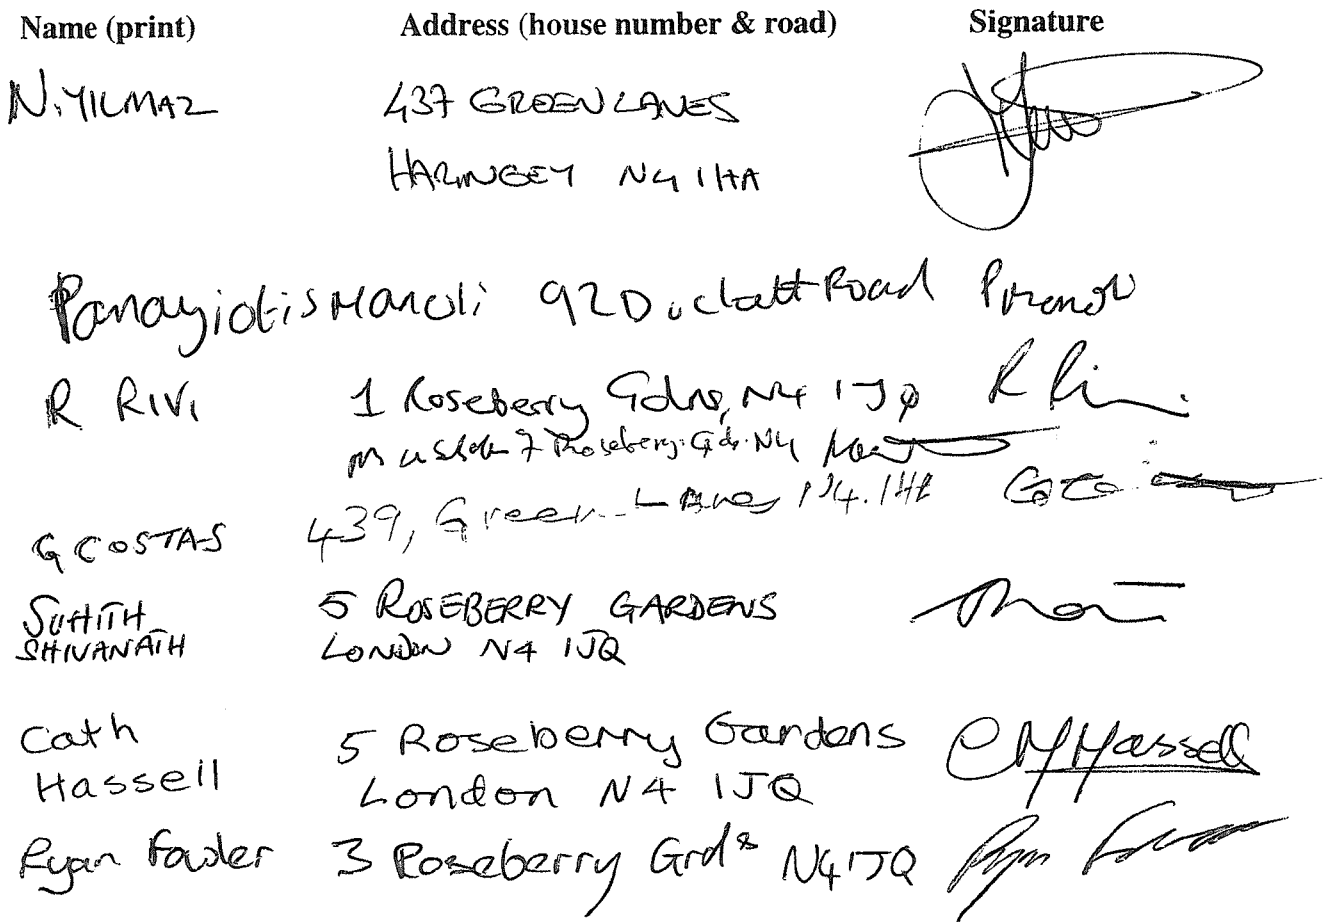 Name (print) Address (house number & road) Signature
N. YILMAZ 437 GREEN LANES
HARINGEY N4 1HA
Panayiotis Manoli 92 Duckett Road
R RIVI 1 Roseberry Gdns, N4 1JQ R Rivi
7 Roseberry Gds. N4
G COSTAS 439, Green Lanes N4. 1HA
SUHITH 5 ROSEBERRY GARDENS
SHIVANATH LONDON N4 1JQ
Cath 5 Roseberry Gardens CM Hassell
Hassell London N4 1JQ
Ryan Fowler 3 Roseberry Grds N4 1JQ Ryan Fowler